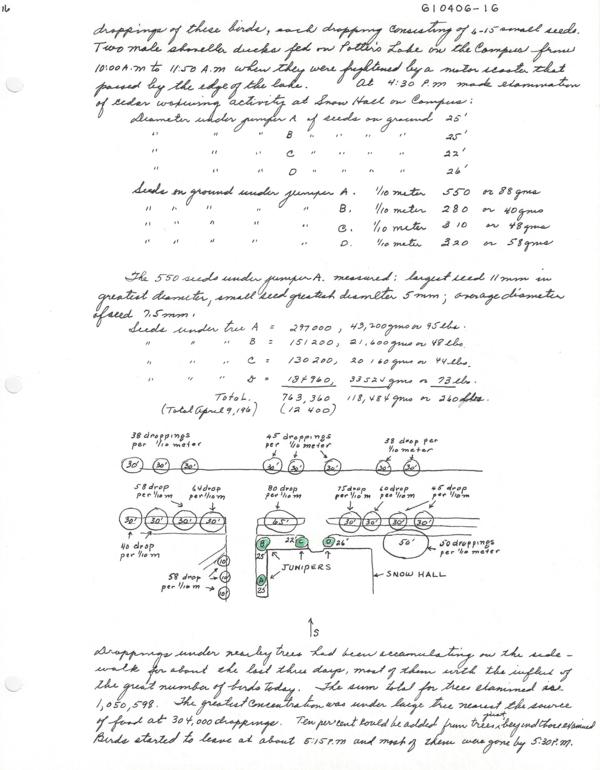 16
610406-16
droppings of these birds, each dropping consisting of 6-15 small seeds.
Two male shoveller ducks fed on Potter's Lake on the Campus from
10:00 A.M to 11:50 A.M when they were frightened by a motor scooter that
passed by the edge of the lake. At 4:30 P.M made examination
of cedar waxwing activity at Snow Hall on Campus:
Diameter under juniper A of seeds on ground 25'
" " " B " " " " 25'
" " " C " " " " 22'
" " " D " " " " 26'
Seeds on ground under juniper A. 1/10 meter 550 or 88 gms
" " " " " B. 1/10 meter 280 or 40 gms
" " " " " C. 1/10 meter 310 or 48 gms
" " " " " D. 1/10 meter 320 or 58 gms
The 550 seeds under juniper A. measured: largest seed 11 mm in
greatest diameter, small seed greatest diameter 5 mm; average diameter
of seed 7.5 mm.
Seeds under tree A = 297000, 43,200 gms or 95 lbs.
" " " B = 151200, 21,600 gms or 48 lbs.
" " " C = 130200, 20160 gms or 44 lbs.
" " " D = 184960, 33524 gms or 73 lbs.
Total. 763,360 118,484 gms or 260 lbs.
(Total April 9, 196) (12 400)
38 droppings per 1/10 meter
45 droppings per 1/10 meter
38 drop per 1/10 meter
30' 30' 30' 30' 30' 30' 30' 30'
58 drop per 1/10 m
64 drop per 1/10 m
80 drop per 1/10 m
75 drop per 1/10 m
60 drop per 1/10 m
45 drop per 1/10 m
30' 30' 30' 30' 65' 30' 30' 30' 30'
40 drop per 1/10 m
B 22' C D 26' 50' 50 droppings per 1/10 meter
25
10'
58 drop per 1/10 m
10'
10'
JUNIPERS
SNOW HALL
A
25
S
Droppings under nearby trees had been accumulating on the side-
walk for about the last three days, most of them with the influx of
the great number of birds today. The sum total for trees examined is
1,050,598. The greatest concentration was under large tree nearest the source
of food at 304,000 droppings. Ten per cent could be added from trees just beyond those examined
Birds started to leave at about 5:15 P.M and most of them were gone by 5:30 P.M.